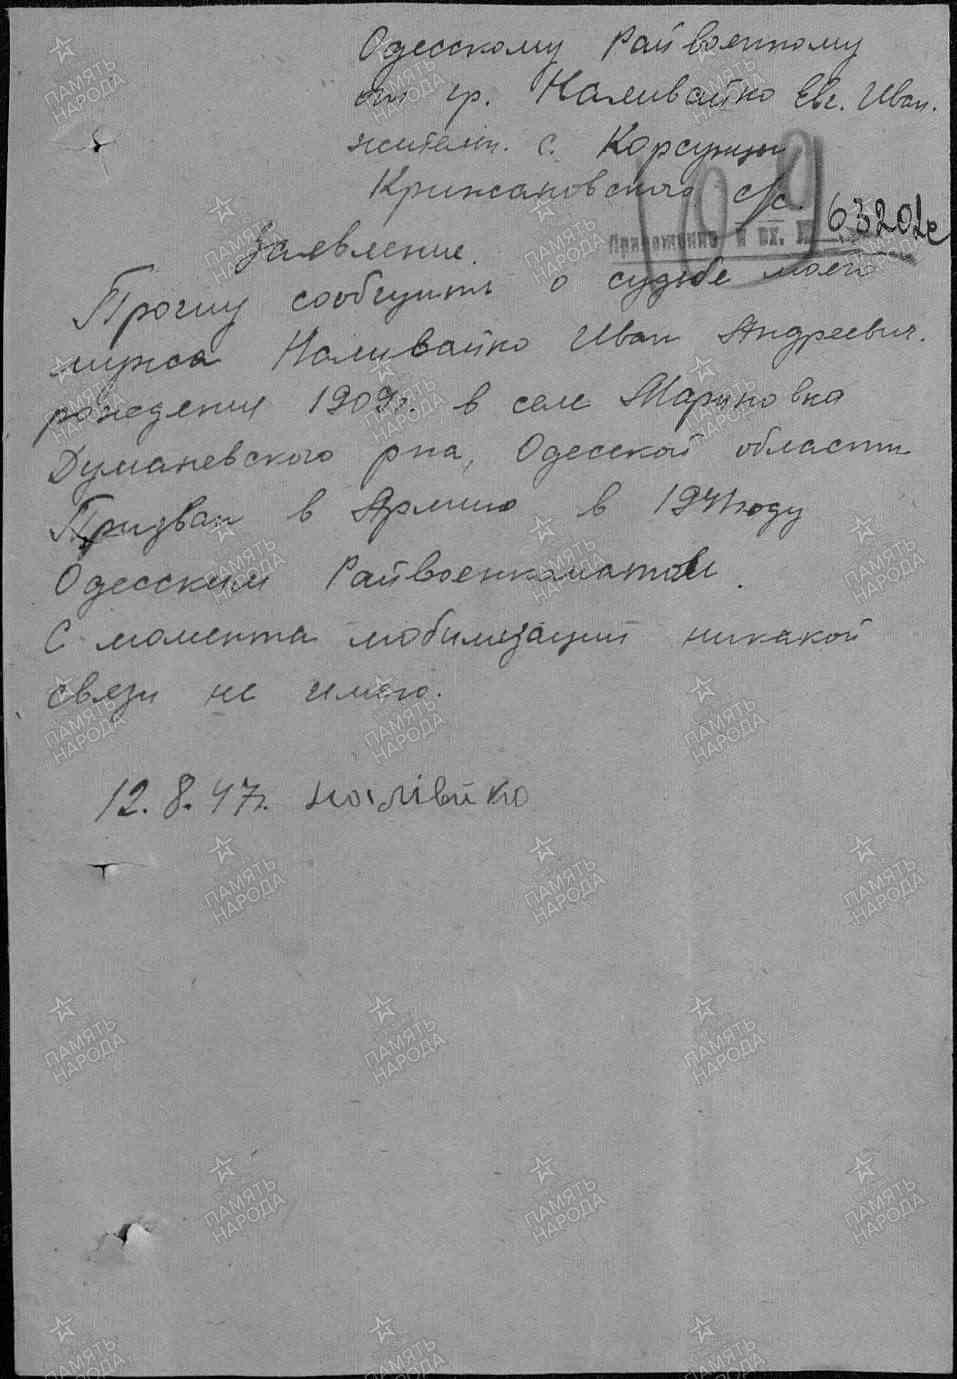 Одесскому Райвоенкому
от гр. Наливайко Евг. Иван.
жительн. с. Корсунцы
Крижановского с/с.
Приложение к вх. № 63202с
Заявление.
Прошу сообщить о судьбе моего
мужа Наливайко Иван Андреевич.
рождения 1909г. в селе Мариновка
Думаневского р-на, Одесской области
Призван в Армию в 1941 году
Одесским Райвоенкоматом.
С момента мобилизации никакой
связи не имею.
12.8.47г. Налівйко